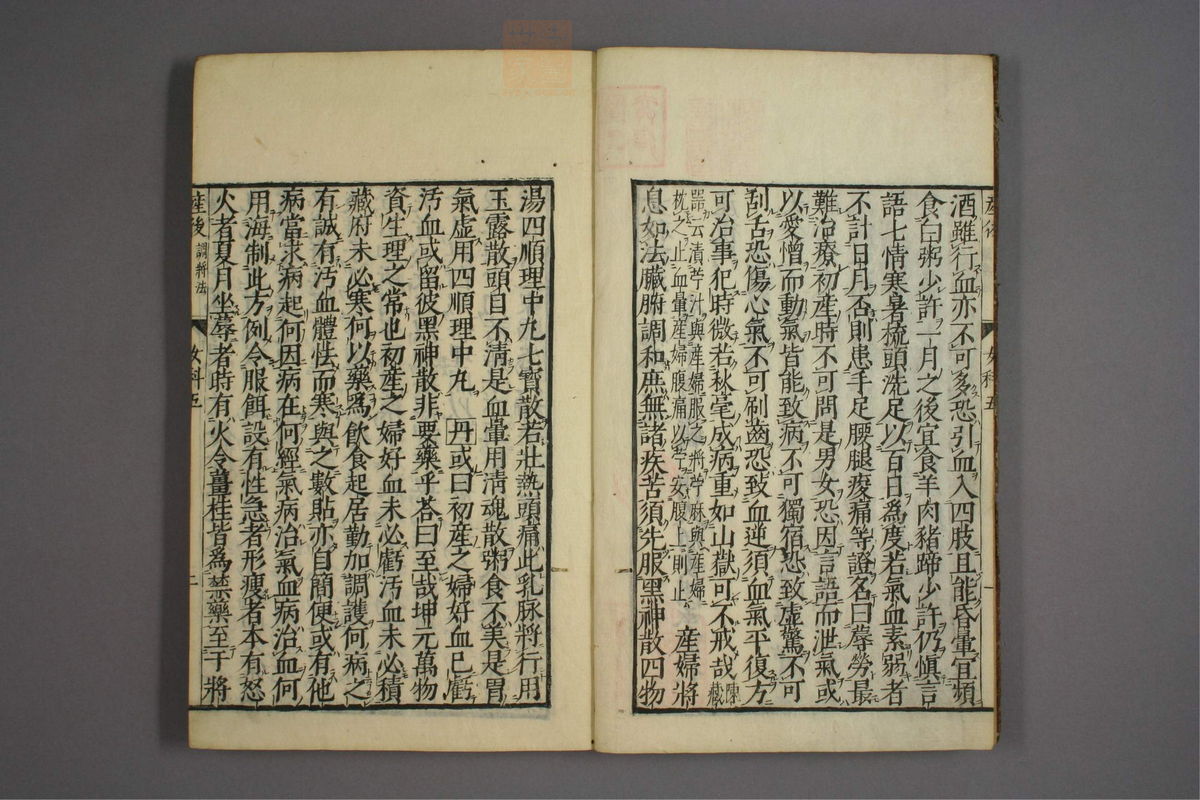 酒雖行血亦不可多恐引血入四肢且能昏暈宜頻
食白粥少許一月之後宜食羊肉豬蹄少許仍慎言
語七情寒暑梳頭洗足以百日為度若氣血素弱者
不計日月否則患手足腰腿痠痛等證名曰蓐勞最
難治療初産時不可問是男女恐因言語而泄氣或
以愛憎而動氣皆能致病不可獨宿恐致虛驚不可
刮舌恐傷心氣不可刷齒恐致血逆須血氣平復方
可治事犯時微若秋毫成病重如山嶽可不戒哉陳藏
器云漬苧汁與産婦服之將苧麻與産婦
枕之止血暈産婦腹痛以苧安腹上則止 産婦將
息如法臟腑調和庶無諸疾苦須先服黑神散四物
産後 女科五
湯四順理中丸七寶散若壯熱頭痛此乳脉將行用
玉露散頭目不清是血暈用清魂散粥食不美是胃
氣虛用四順理中丸 丹或曰初産之婦好血已虧
汚血或留彼黑神散非要藥乎荅曰至哉坤元萬物
資生理之常也初産之婦好血未必虧汚血未必積
藏府未必寒何以藥爲飲食起居勤加調護何病之
有誠有汚血體怯而寒與之數貼亦自簡便或有他
病當求病起何因病在何經氣病治氣血病治血何
用海制此方例令服餌設有性急者形瘦者本有怒
火者夏月坐蓐者時有火令薑桂皆爲禁藥至于將
産後 調將法 女科五 二